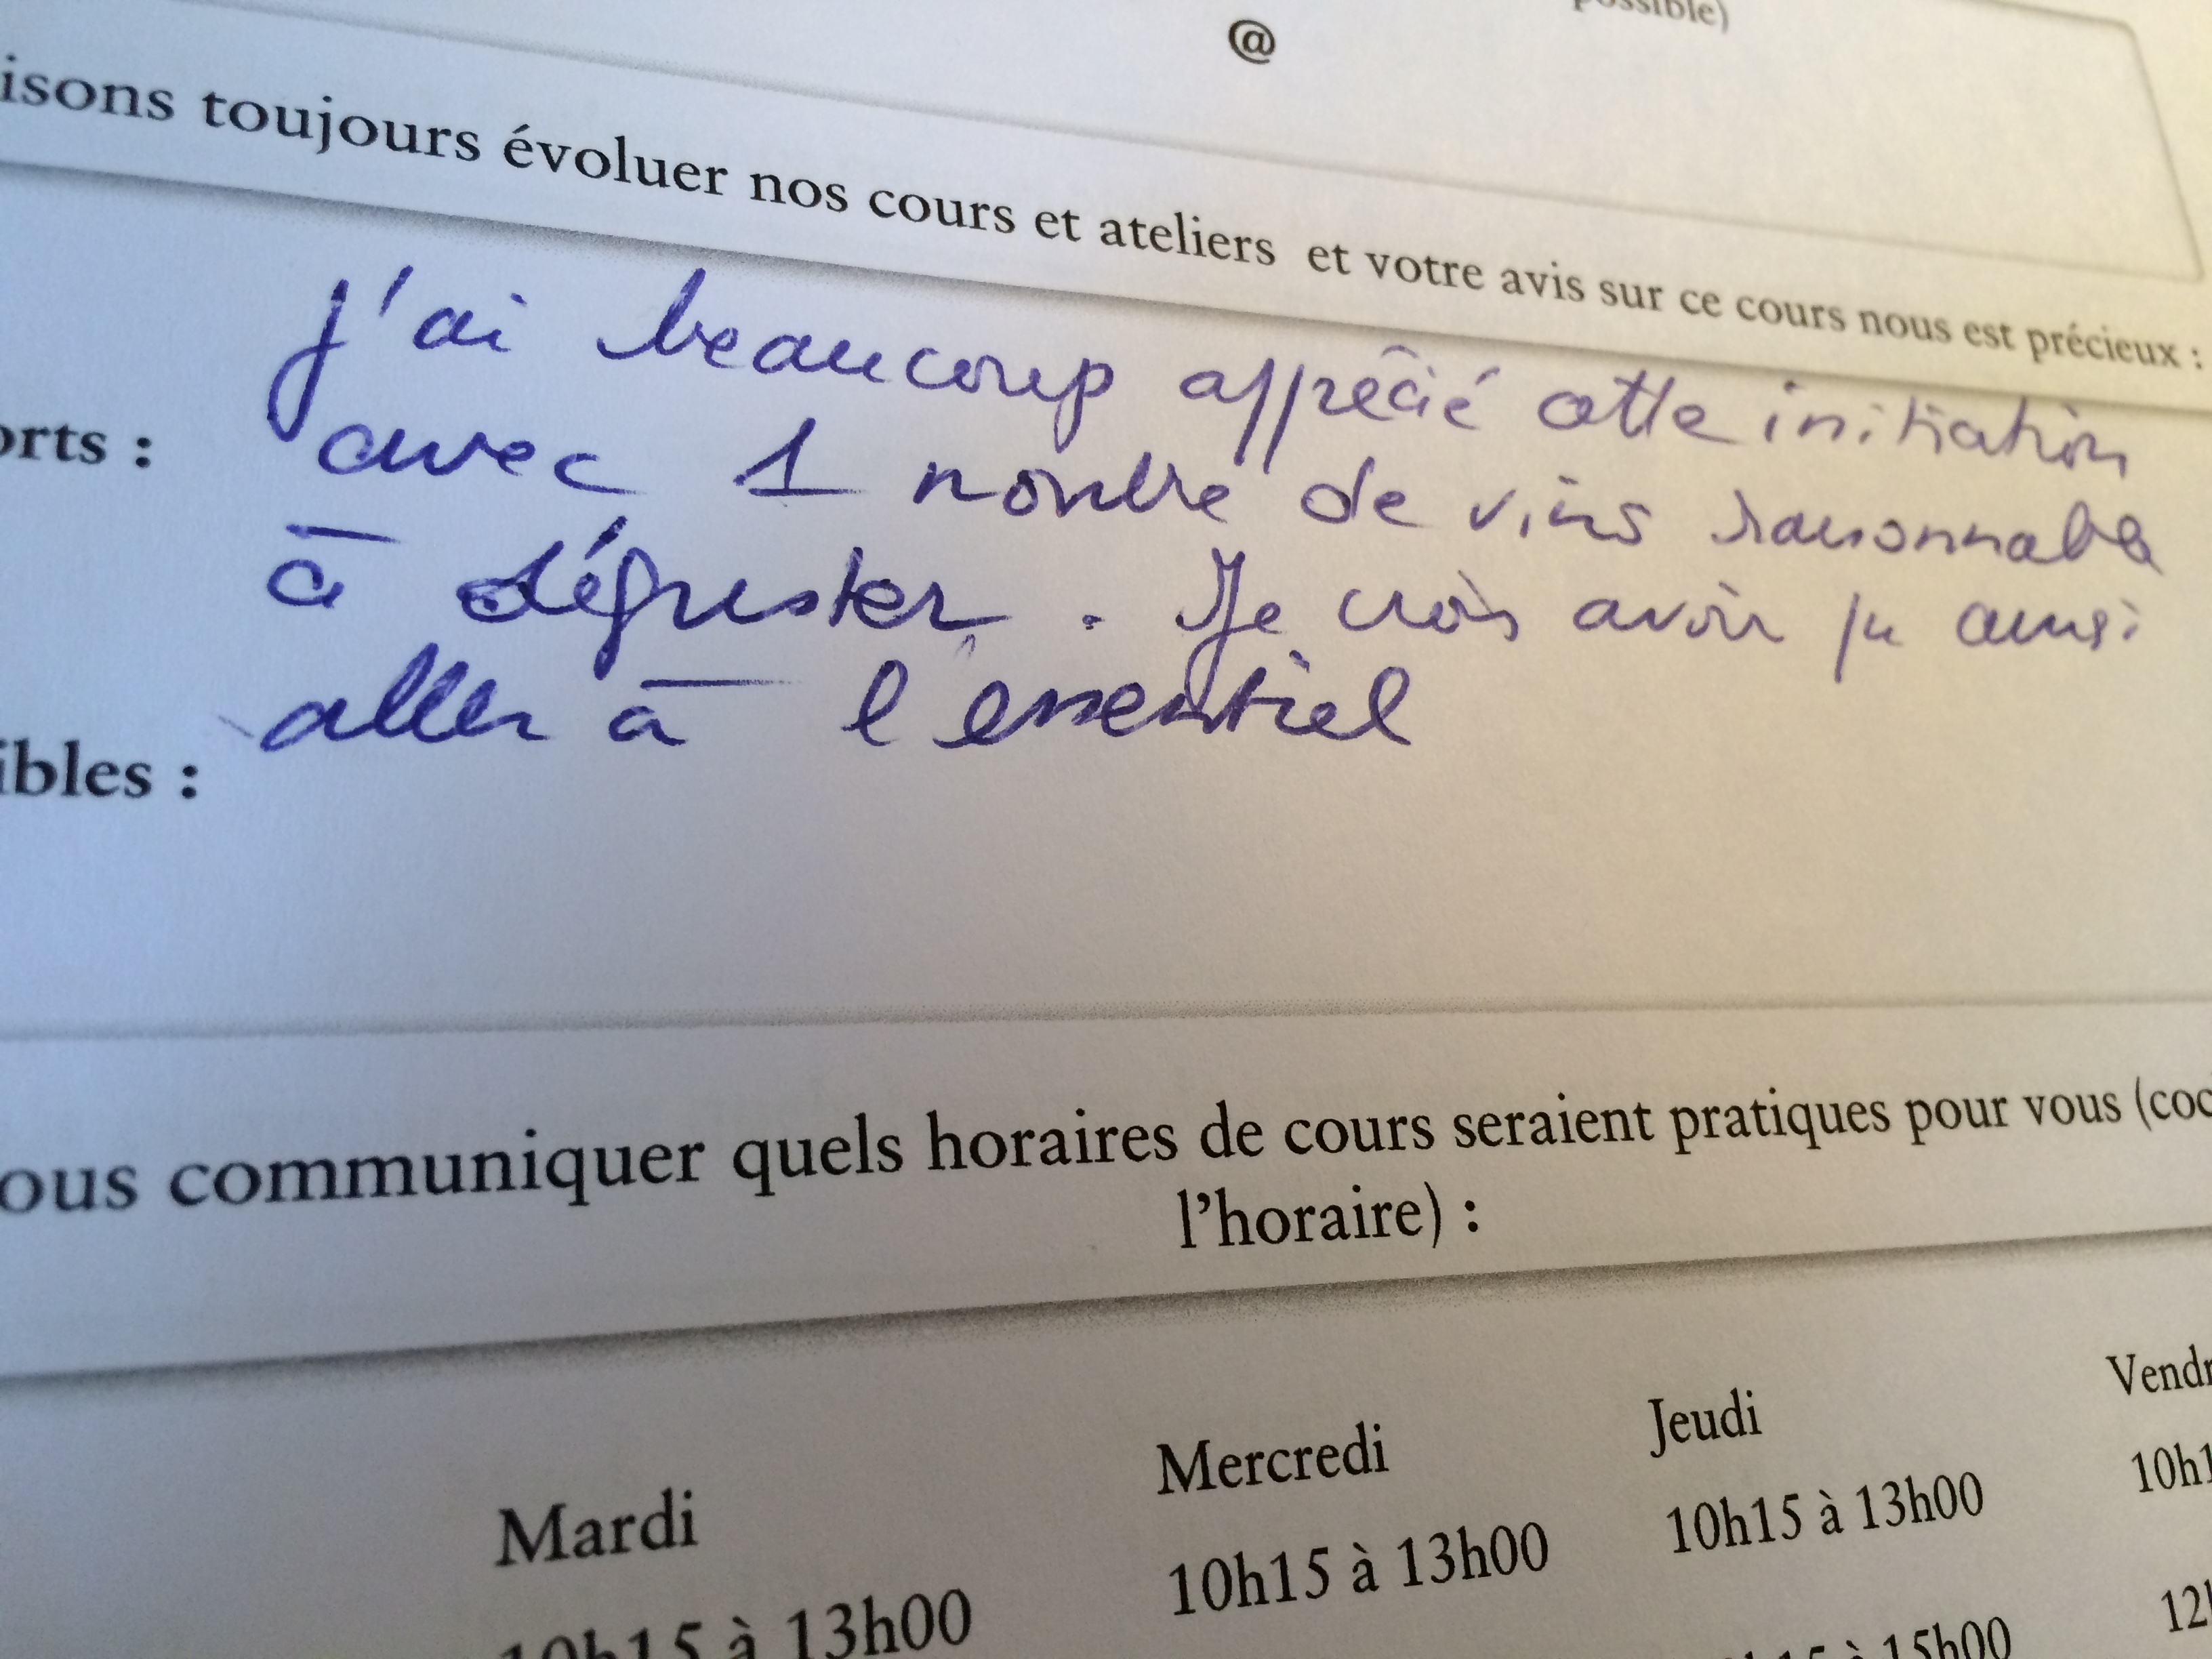 possible)
@
isons toujours évoluer nos cours et ateliers et votre avis sur ce cours nous est précieux :
orts :
j'ai beaucoup apprécié cette initiation
avec 1 nombre de vins raisonnable
à déguster. Je crois avoir pu ainsi
aller à l'essentiel
ibles :
ous communiquer quels horaires de cours seraient pratiques pour vous (coc
l'horaire) :
Mardi Mercredi Jeudi Vendr
10h15 à 13h00 10h15 à 13h00 10h15 à 13h00 10h1
15 à 15h00 12h